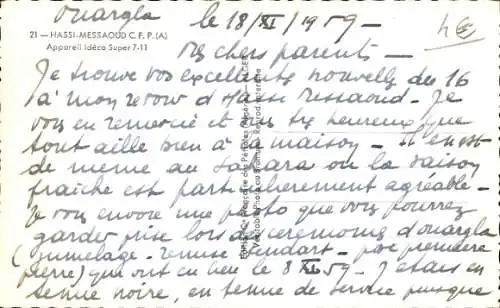 Ouargla le 18/XI/1959 -
4€
21 — HASSI-MESSAOUD C. F. P. (A)
Appareil Idéco Super 7-11
Mes chers parents -
Je trouve vos excellentes nouvelles du 16
à mon retour d'Hassi Messaoud - Je
vous en remercie et suis très heureux que
tout aille bien à la maison - Il en est
de même au Sahara où la saison
fraîche est particulièrement agréable -
Je vous envoie une photo que vous pourrez
garder prise lors des cérémonies d'Ouargla
(jumelage - remise étendart - pose première
pierre) qui ont eu lieu le 8 XI 59 - J'étais en
tenue noire, en tenue de service puisque